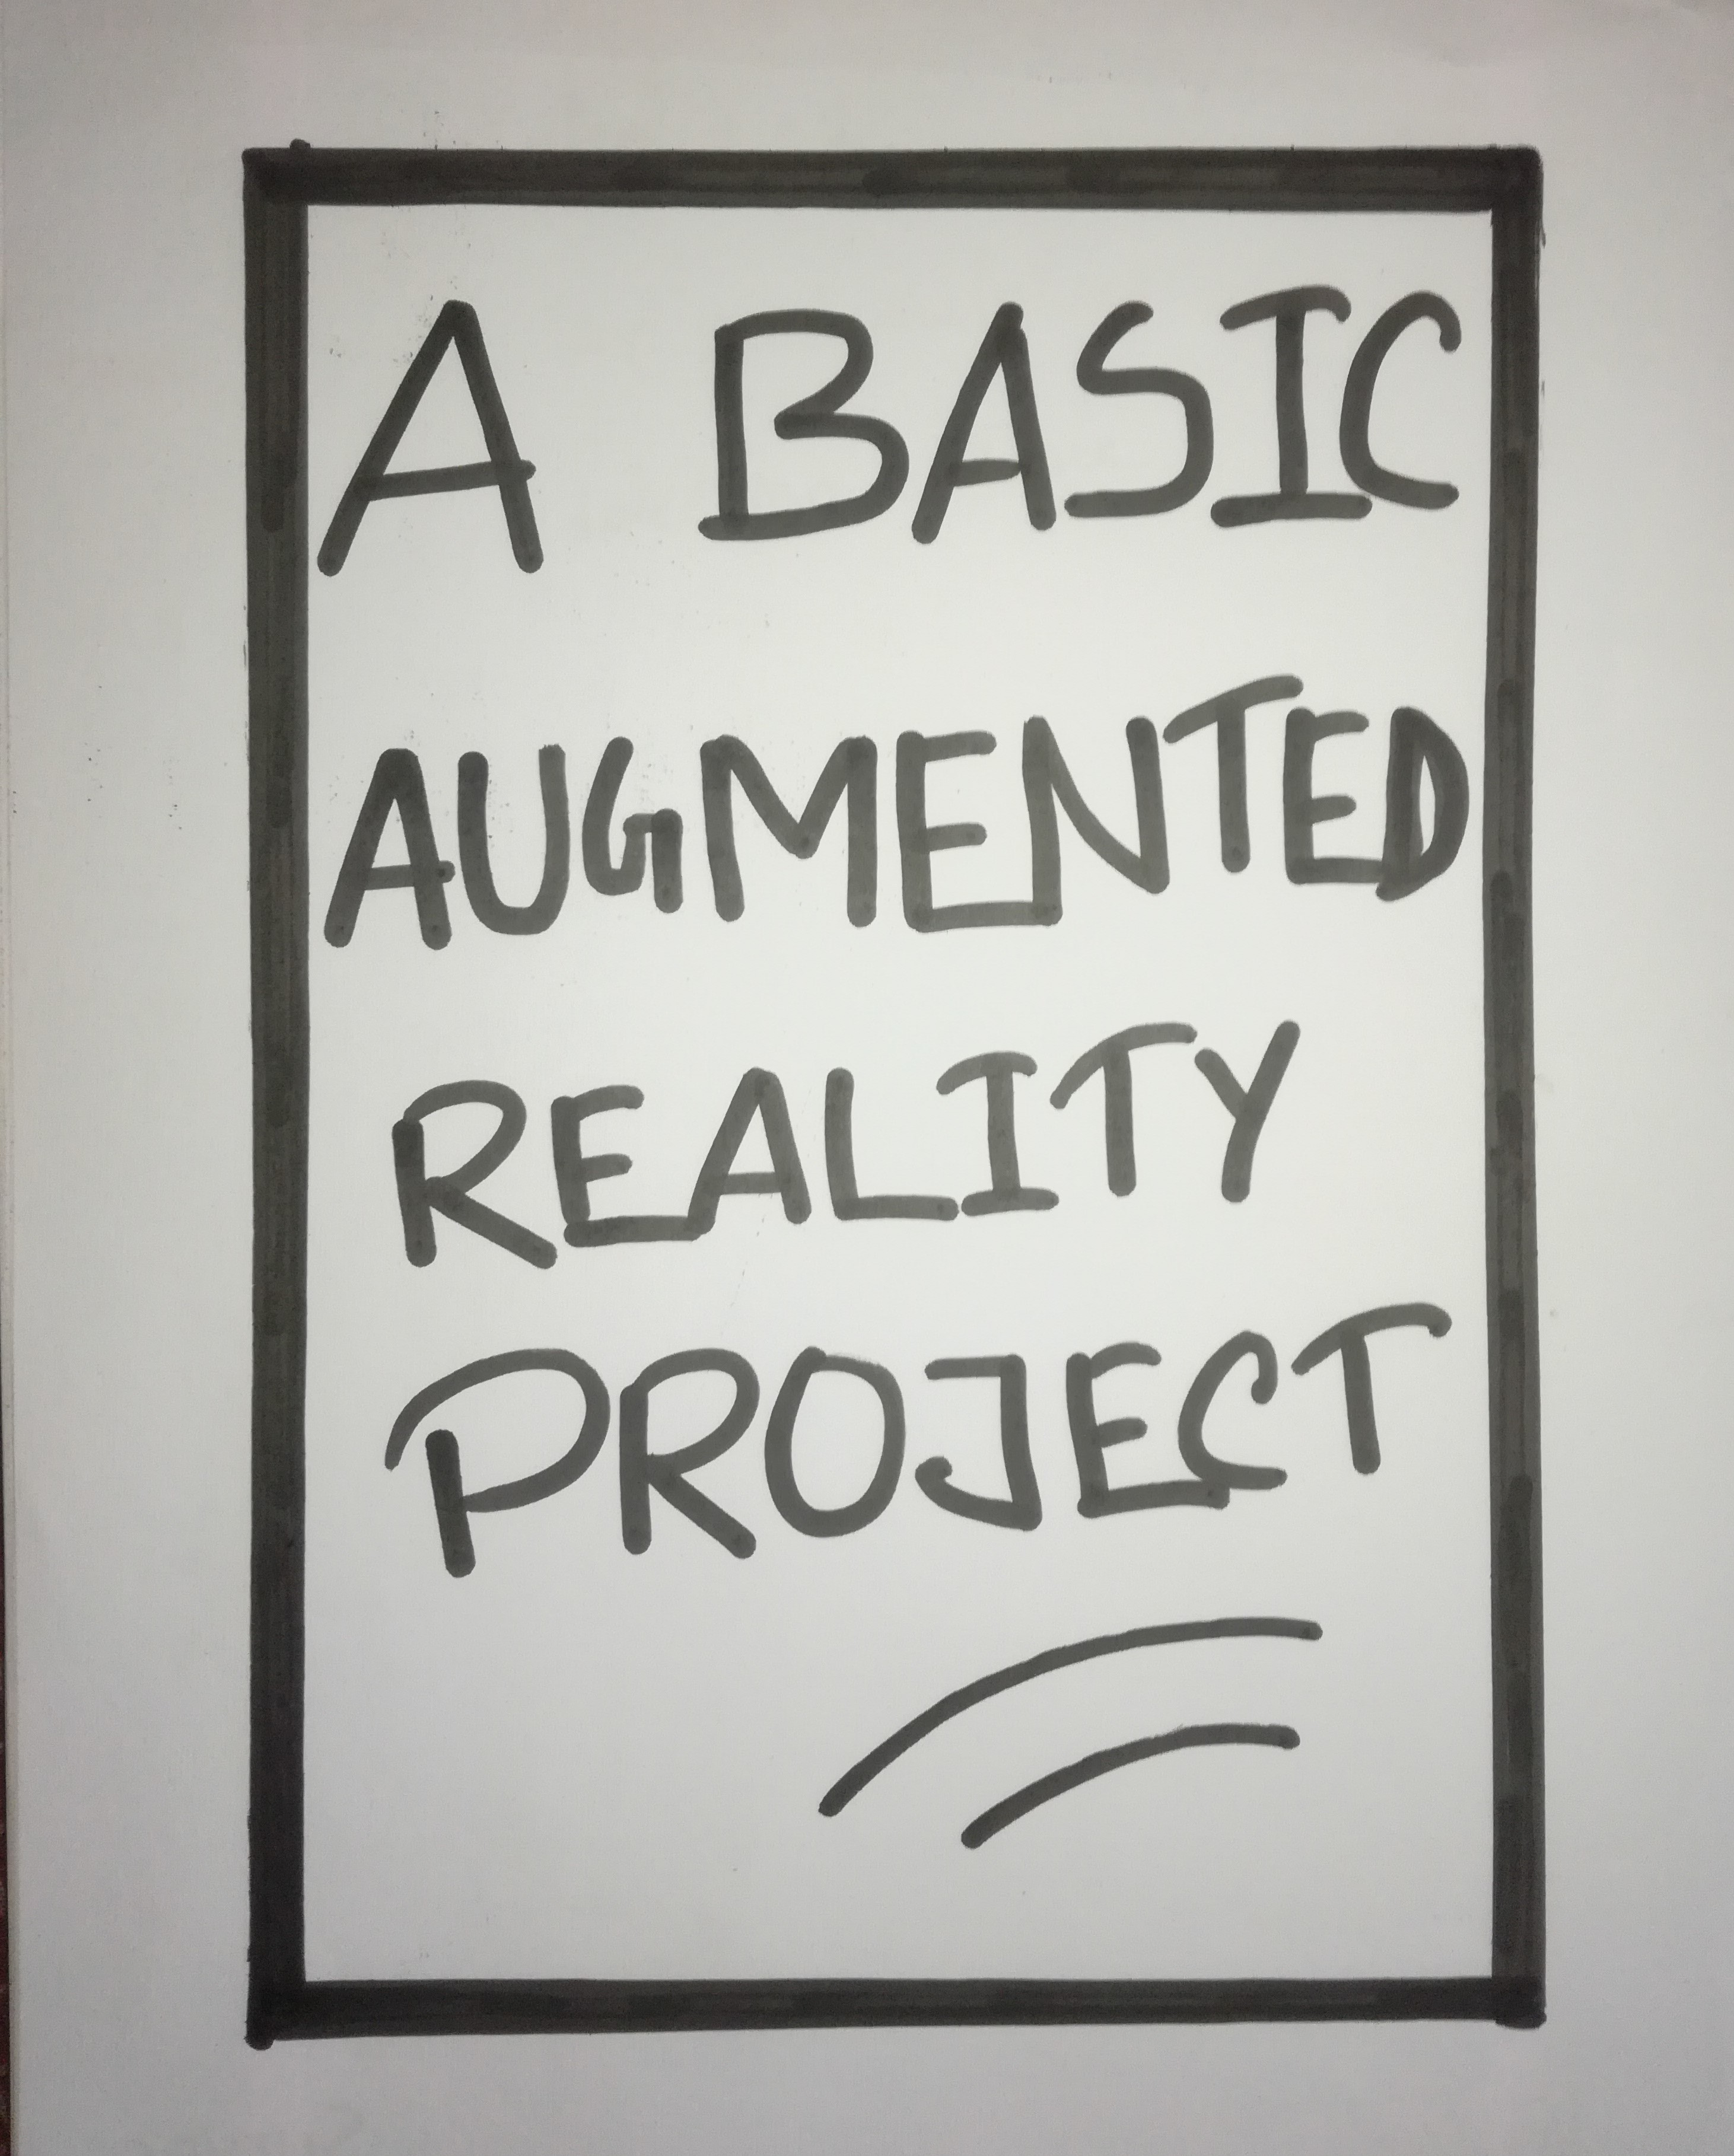 A BASIC
AUGMENTED
REALITY
PROJECT